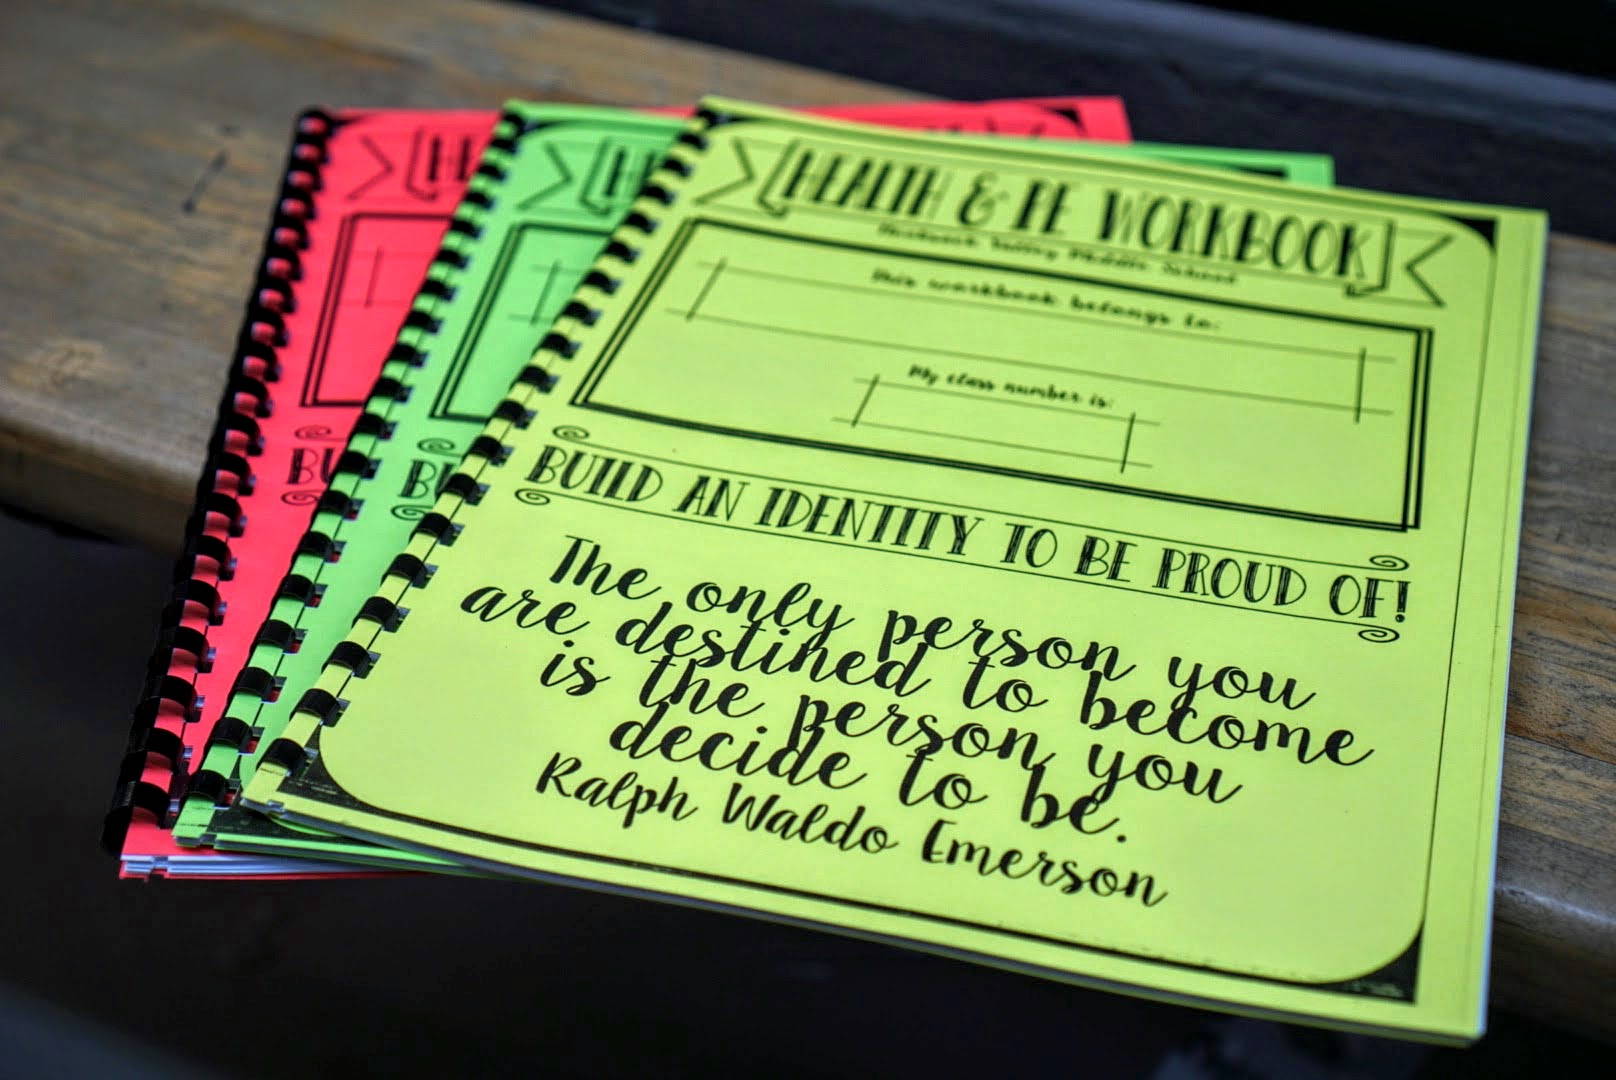 HEALTH & PE WORKBOOK
Valley Middle School
This workbook belongs to:
My class number is:
BUILD AN IDENTITY TO BE PROUD OF!
The only person you
are destined to become
is the person you
decide to be.
Ralph Waldo Emerson
HE
BU
H
BU